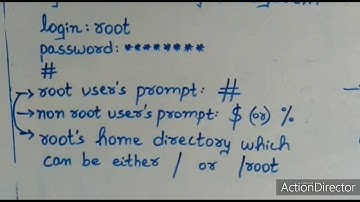 login: root
password: ********
#
→ root user's prompt: #
→ non root user's prompt: $ (or) %
→ root's home directory which
can be either / or /root
ActionDirector